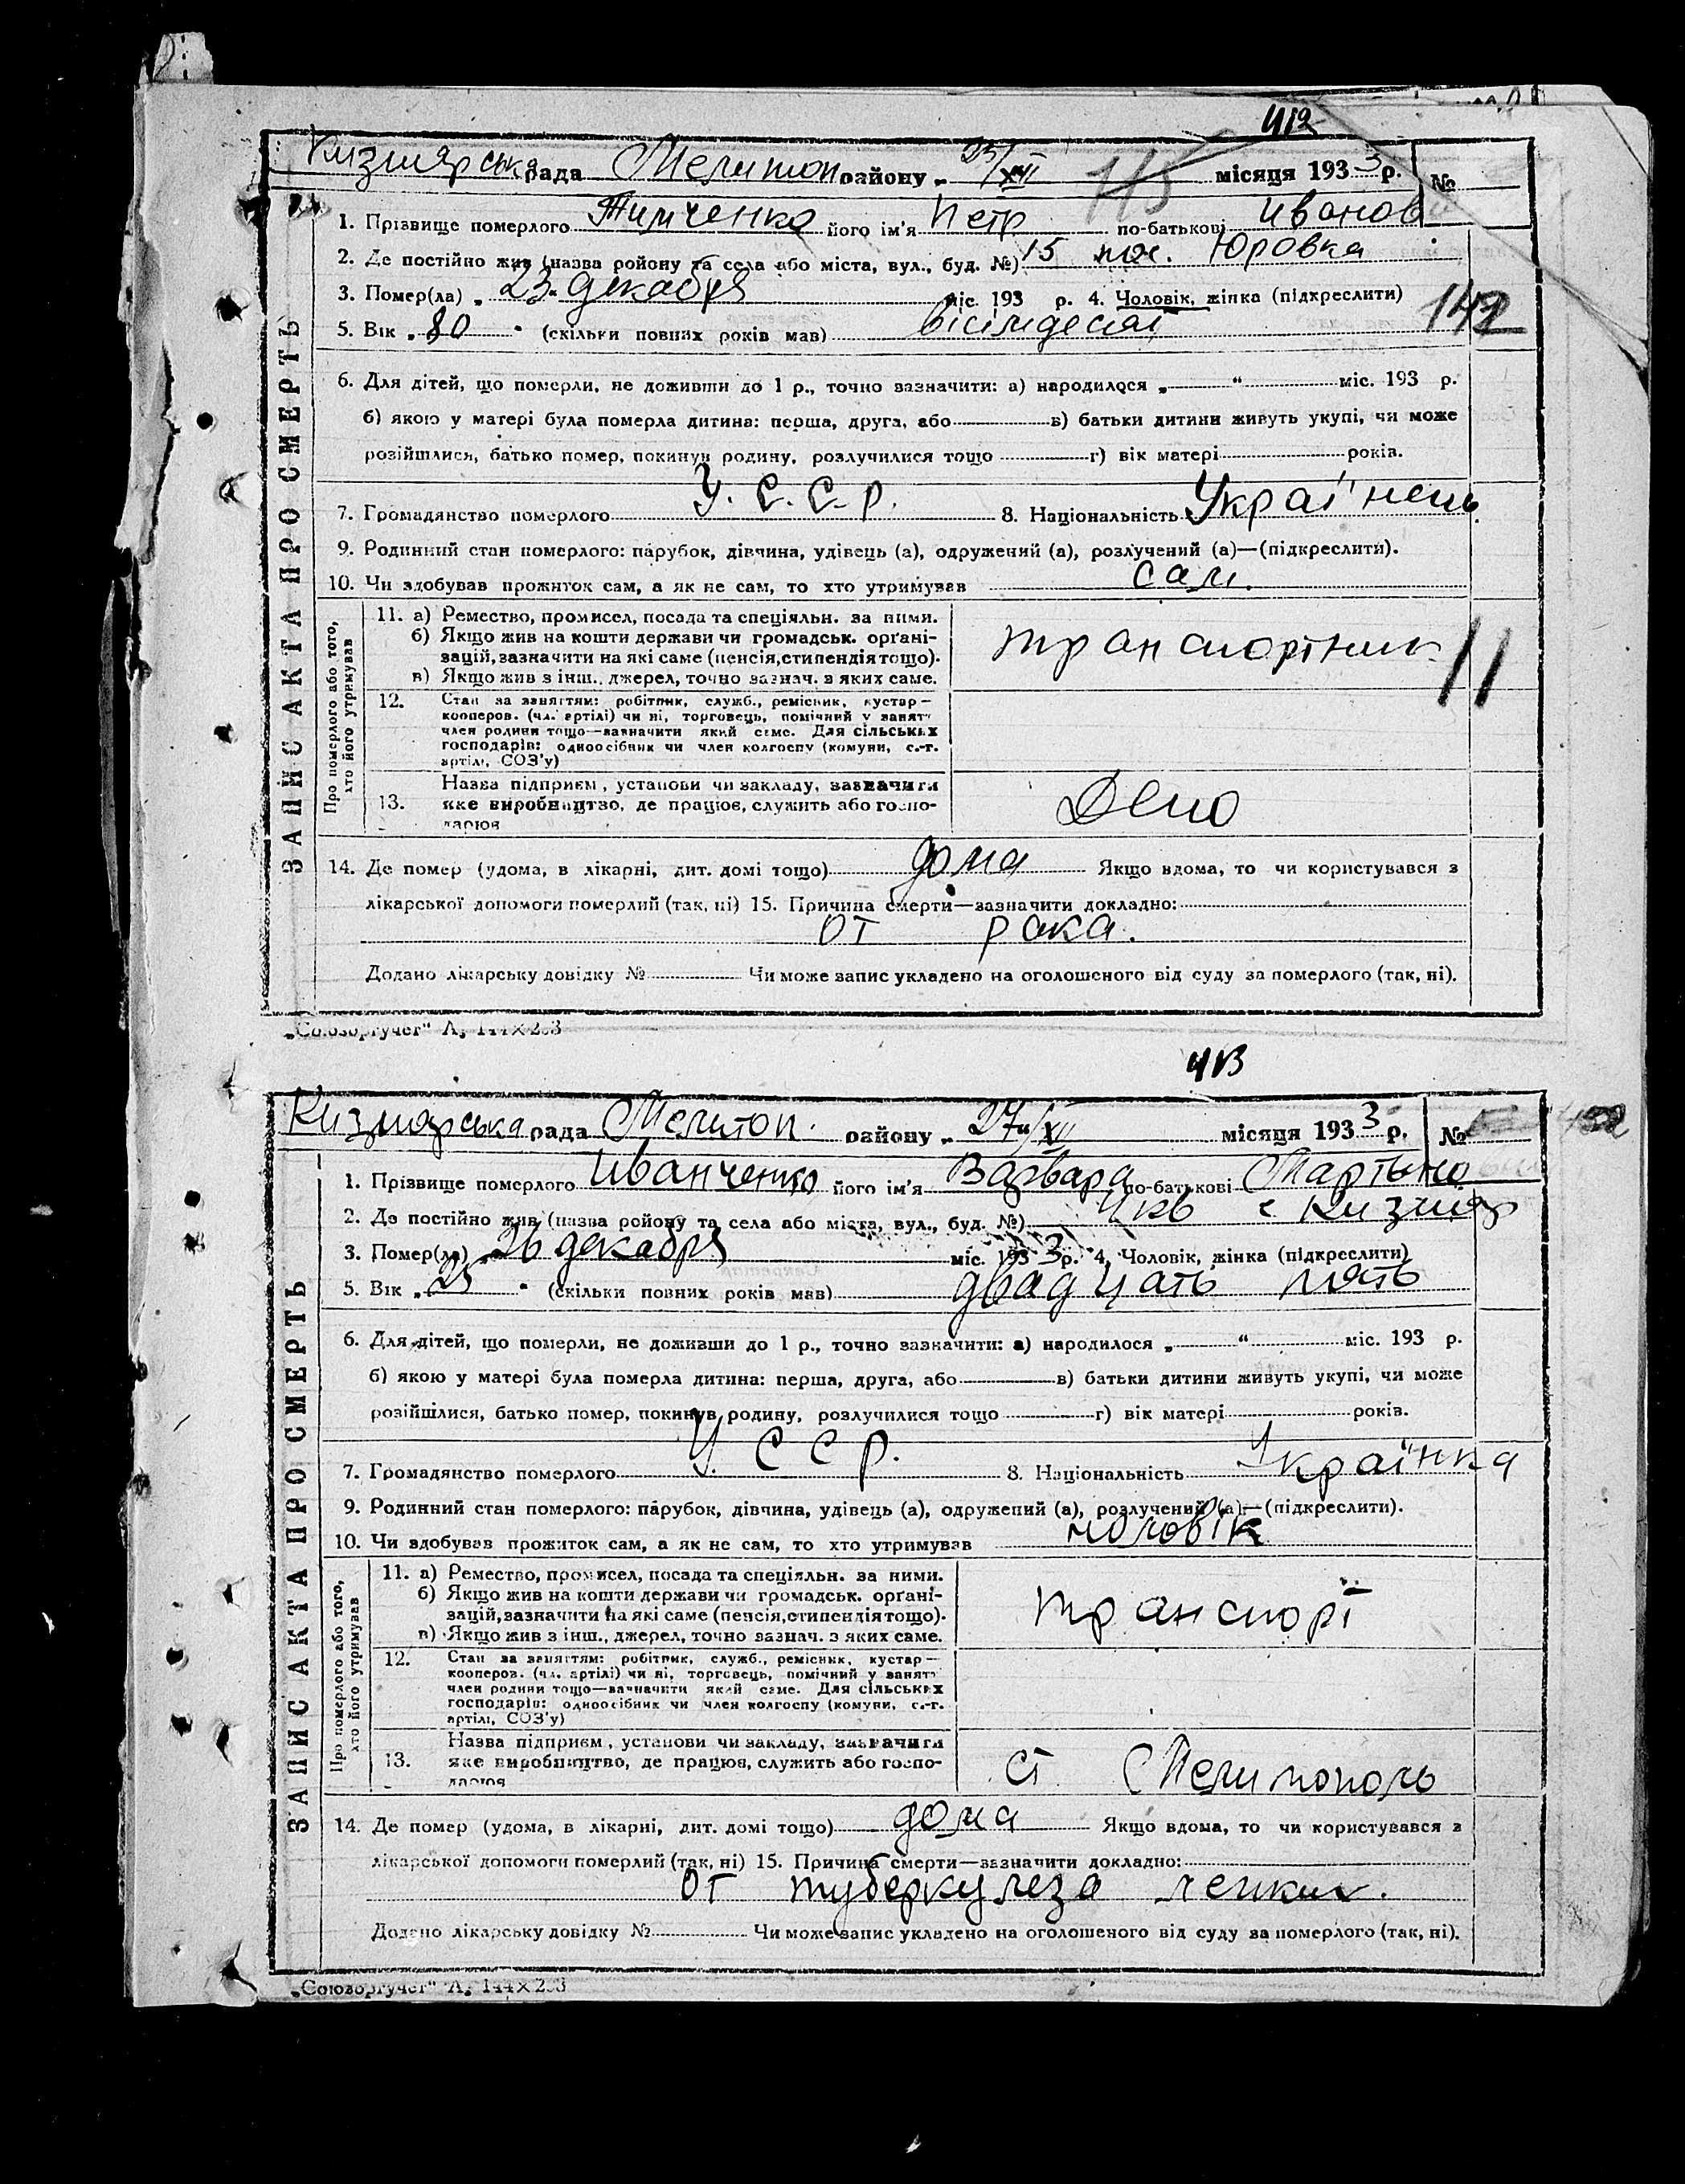 412
Кизиярська рада Мелитоп району „ 25/XII місяця 193 3 р. №
115
1. Прізвище померлого Тимченко його ім'я Петр по-батькові Иванов
2. Де постійно жив (назва ройону та села або міста, вул., буд. №) 15 пох. Юровка
3. Помер(ла) „ 23 декабря міс. 193 р. 4. Чоловік, жінка (підкреслити)
142
5. Вік „ 80 " (скільки повних років мав) вісімдесят
6. Для дітей, що померли, не доживши до 1 р., точно зазначити: а) народилося „ “ міс. 193 р.
б) якою у матері була померла дитина: перша, друга, або в) батьки дитини живуть укупі, чи може
розійшлися, батько помер, покинув родину, розлучилися тощо г) вік матері років.
7. Громадянство померлого У. С. С. Р. 8. Національність Украі'нець
9. Родинний стан померлого: парубок, дівчина, удівець (а), одружений (а), розлучений (а)—(підкреслити).
10. Чи здобував прожиток сам, а як не сам, то хто утримував сам.
ЗАПИС АКТА ПРО СМЕРТЬ
Про померлого або того,
хто його утримував
11. а) Ремество, промисел, посада та спеціяльн. за ними.
б) Якщо жив на кошти держави чи громадськ. орґані-
зацій, зазначити на які саме (пенсія, стипендія тощо).
в) Якщо жив з інш. джерел, точно зазнач. з яких саме.
транспортник
12. Стан за заняттям: робітник, служб., ремісник, кустар—
кооперов. (чл. артілі) чи ні, торговець, помічний у занят
член родини тощо—зазначити який саме. Для сільських
господарів: одноосібник чи член колгоспу (комуни, с.-г.
артілі, СОЗ'у)
13. Назва підприєм, установи чи закладу, зазначити
яке виробництво, де працює, служить або госпо-
дарює
Депо
14. Де помер (удома, в лікарні, дит. домі тощо) дома Якщо вдома, то чи користувався з
лікарської допомоги померлий (так, ні) 15. Причина смерти—зазначити докладно:
от рака.
Додано лікарську довідку № Чи може запис укладено на оголошеного від суду за померлого (так, ні).
„Союзоргучет" А, 144×203
413
Кизиярська рада Мелитоп. району „ 27/XII місяця 193 3 р. №
1. Прізвище померлого Иванченко його ім'я Варвара по-батькові Мартыно
2. Де постійно жив (назва ройону та села або міста, вул., буд. №) 4 кв с Кизияр
3. Помер(ла) 26 декабря міс. 193 3 р. 4. Чоловік, жінка (підкреслити)
5. Вік „ 25 " (скільки повних років мав) двадцать пять
6. Для дітей, що померли, не доживши до 1 р., точно зазначити: а) народилося „ “ міс. 193 р.
б) якою у матері була померла дитина: перша, друга, або в) батьки дитини живуть укупі, чи може
розійшлися, батько помер, покинув родину, розлучилися тощо г) вік матері років.
7. Громадянство померлого У. С С Р. 8. Національність Українка
9. Родинний стан померлого: парубок, дівчина, удівець (а), одружений (а), розлучений (а)—(підкреслити).
10. Чи здобував прожиток сам, а як не сам, то хто утримував чоловік
ЗАПИС АКТА ПРО СМЕРТЬ
Про померлого або того,
хто його утримував
11. а) Ремество, промисел, посада та спеціяльн. за ними.
б) Якщо жив на кошти держави чи громадськ. орґані-
зацій, зазначити на які саме (пенсія, стипендія тощо).
в) Якщо жив з інш., джерел, точно зазнач. з яких саме.
транспорт
12. Стан за заняттям: робітник, служб., ремісник, кустар—
кооперов. (чл. артілі) чи ні, торговець, помічний у занят
член родини тощо—зазначити який саме. Для сільських
господарів: одноосібник чи член колгоспу (комуни, с.-г.
артілі, СОЗ'у)
13. Назва підприєм, установи чи закладу, зазначити
яке виробництво, де працює, служить або госпо-
дарює
ст Мелитополь
14. Де помер (удома, в лікарні, дит. домі тощо) дома Якщо вдома, то чи користувався з
лікарської допомоги померлий (так, ні) 15. Причина смерти—зазначити докладно:
от туберкулеза легких.
Додано лікарську довідку № Чи може запис укладено на оголошеного від суду за померлого (так, ні).
„Союзоргучет" А, 144×203